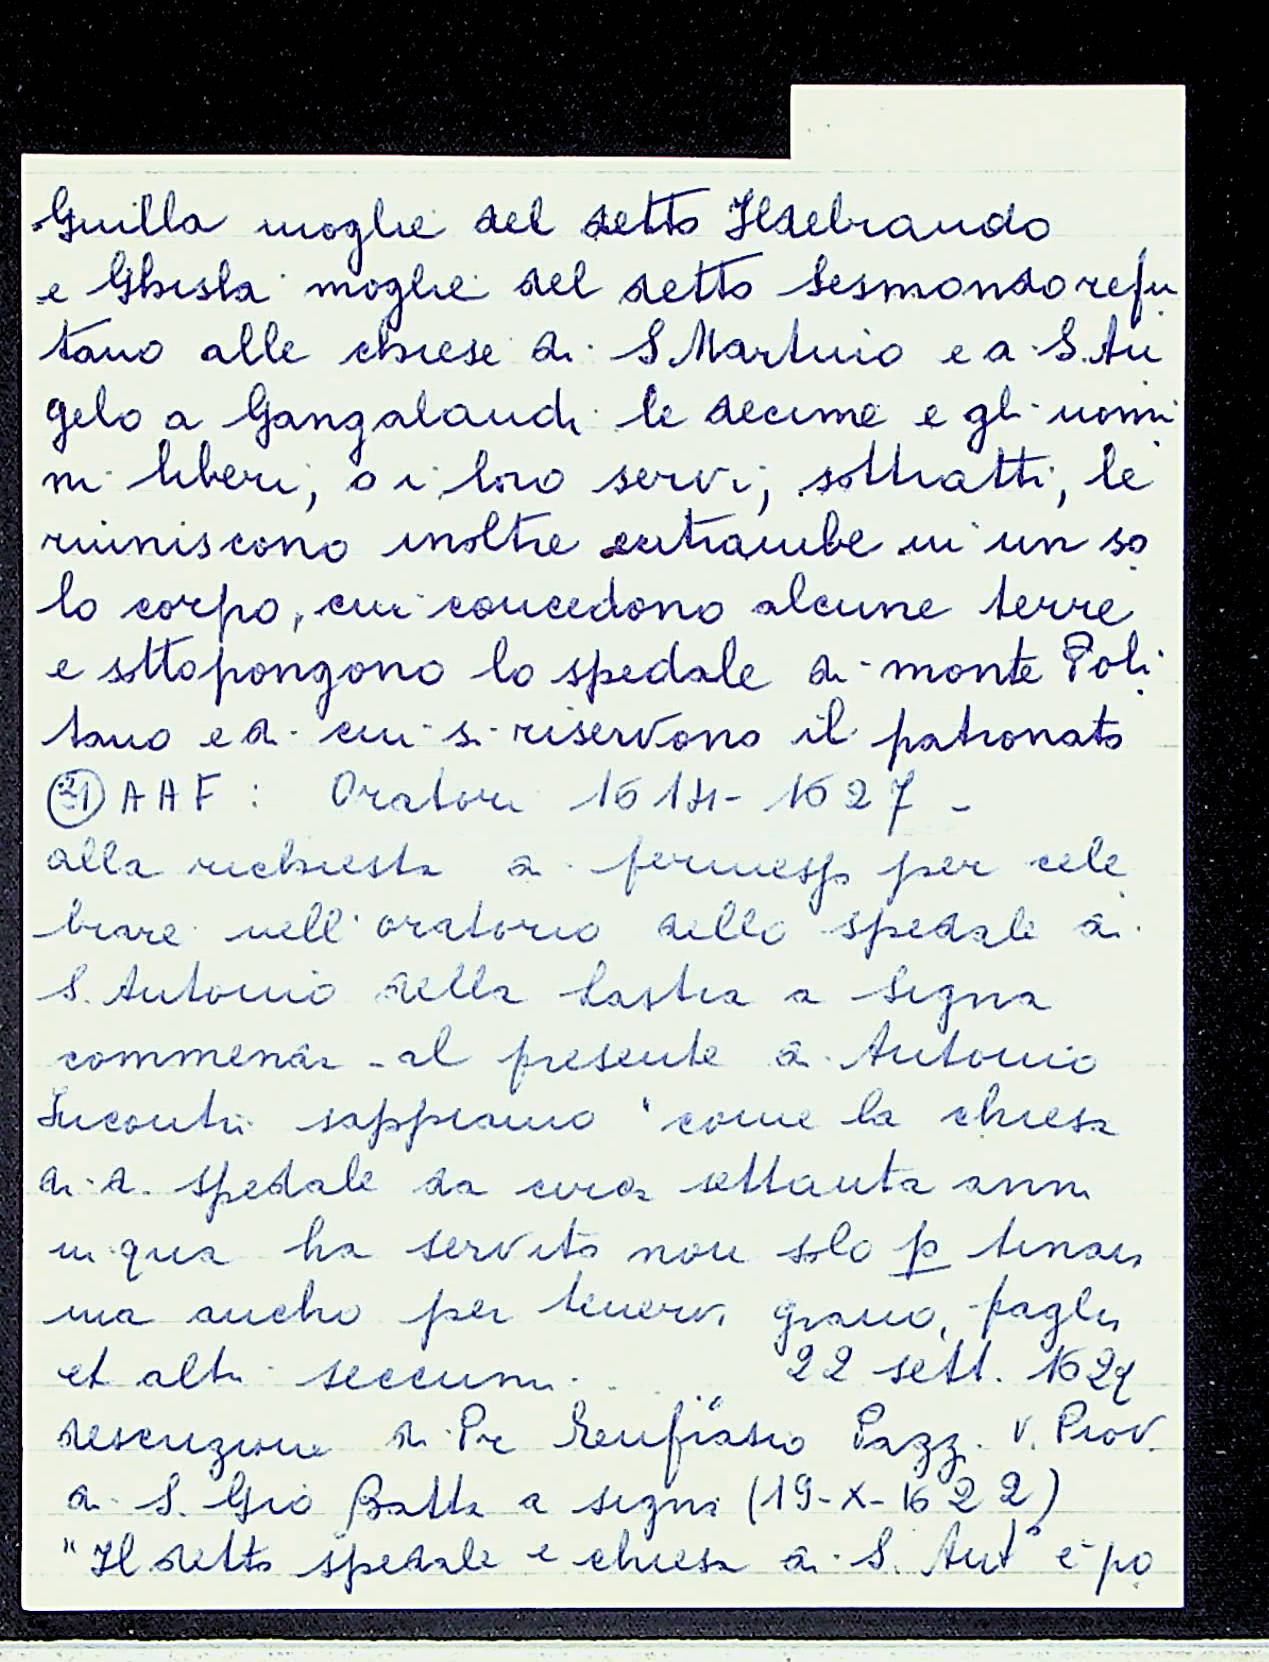 Guilla moglie del detto Ildebrando
e Ghisla moglie del detto Sesmondo refu
tano alle chiese di S. Martino e a S. An
gelo a Gangalandi le decime e gli uomi
ni liberi, o i loro servi, sottratti, le
riuniscono inoltre entrambe in un so
lo corpo, cui concedono alcune terre
e sottopongono lo spedale di monte Poli
tano e di cui si riservono il patronato
31) AAF: Oratori 1614-1627 -
alla richiesta di permesso per cele
brare nell'oratorio dello spedale di
S. Antonio della Lastra a Signa
commenda - al presente di Antonio
Incontri sappiamo "come la chiesa
di d. spedale da circa settanta anni
in qua ha servito non solo p tinaia
ma ancho per tenervi grano, paglia
et altri seccumi. 22 sett. 1624
descrizione di Pr Eufrasio Pazzi V. Prov.
di S. Gio Batta a Signa (19-X-1622)
"Il detto spedale e chiesa di S. Antº è po